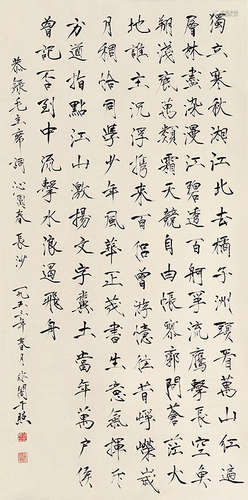 獨立寒秋湘江北去橘子洲頭看萬山紅遍
層林盡染漫江碧透百舸爭流鷹擊長空魚
翔淺底萬類霜天競自由悵寥廓問蒼茫大
地誰主沉浮攜來百侶曾游憶往昔崢嶸歲
月稠恰同學少年風華正茂書生意氣揮斥
方遒指點江山激揚文字糞土當年萬戶侯
曾記否到中流擊水浪遏飛舟
恭錄毛主席詞沁園春長沙 一九五六年春月非闇于照